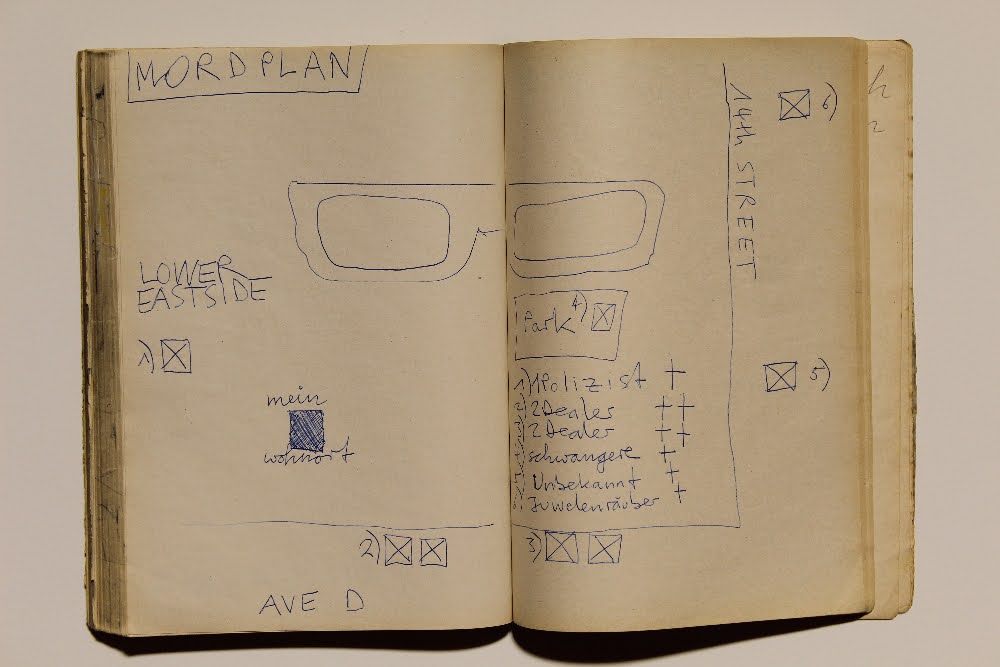 MORDPLAN
LOWER
EASTSIDE
1)
mein
wohnort
2)
AVE D
14th STREET
6)
Park 4)
5)
1) 1Polizist †
2) 2Dealer ††
3) 2Dealer ††
4) schwangere †
5) Unbekannt †
6) Juwelenräuber †
3)